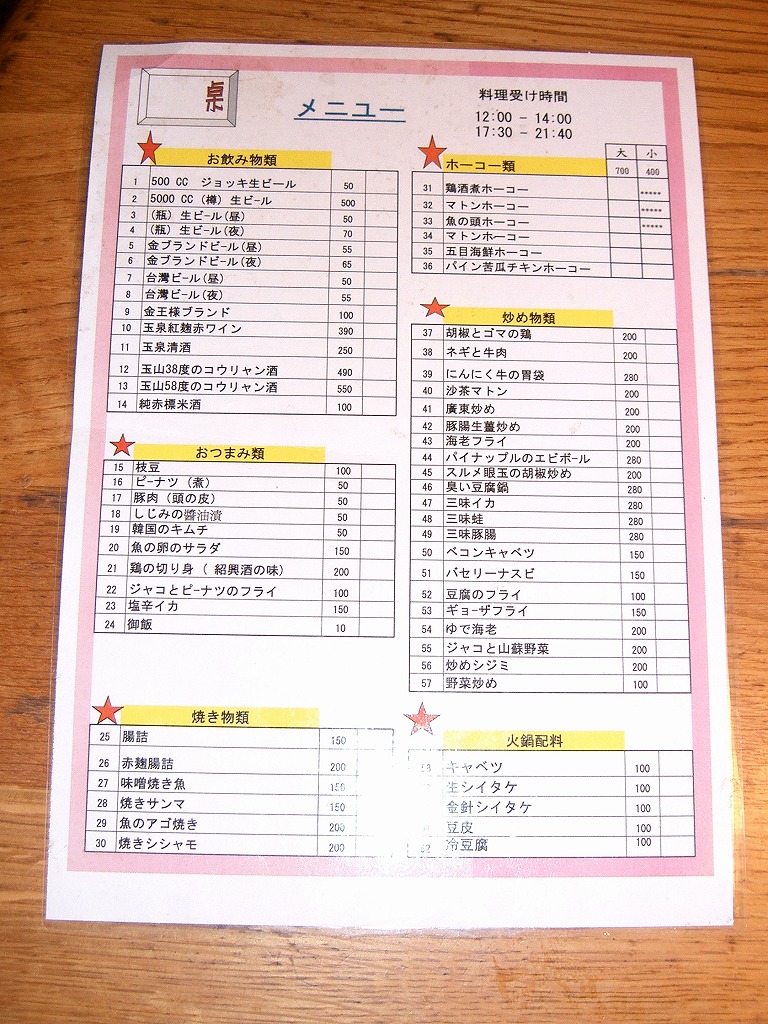 桌
メニュー
料理受け時間
12:00 - 14:00
17:30 - 21:40
お飲み物類
1 500 CC ジョッキ生ビール 50
2 5000 CC (樽) 生ビ-ル 500
3 (瓶) 生ビ-ル(昼) 50
4 (瓶) 生ビ-ル(夜) 70
5 金ブランドビール(昼) 55
6 金ブランドビール(夜) 65
7 台灣ビ-ル(昼) 50
8 台灣ビ-ル(夜) 55
9 金王様ブランド 100
10 玉泉紅麹赤ワイン 390
11 玉泉清酒 250
12 玉山38度のコウリャン酒 490
13 玉山58度のコウリャン酒 550
14 純赤標米酒 100
おつまみ類
15 枝豆 100
16 ピ-ナツ (煮) 50
17 豚肉 (頭の皮) 50
18 しじみの醬油漬 50
19 韓国のキムチ 50
20 魚の卵のサラダ 150
21 鶏の切り身 ( 紹興酒の味) 200
22 ジャコとピ-ナツのフライ 100
23 塩辛イカ 150
24 御飯 10
焼き物類
25 腸詰 150
26 赤麹腸詰 200
27 味噌焼き魚 150
28 焼きサンマ 150
29 魚のアゴ焼き 200
30 焼きシシャモ 200
ホーコー類 大 小
700 400
31 鶏酒煮ホーコー *****
32 マトンホーコー *****
33 魚の頭ホーコー *****
34 マトンホーコー
35 五目海鮮ホーコー
36 パイン苦瓜チキンホーコー
炒め物類
37 胡椒とゴマの鶏 200
38 ネギと牛肉 200
39 にんにく牛の胃袋 280
40 沙茶マトン 200
41 廣東炒め 200
42 豚腸生薑炒め 200
43 海老フライ 200
44 パイナップルのエビボール 280
45 スルメ眼玉の胡椒炒め 200
46 臭い豆腐鍋 280
47 三味イカ 280
48 三味蛙 280
49 三味豚腸 280
50 ベコンキャベツ 150
51 バセリーナスビ 150
52 豆腐のフライ 100
53 ギョ-ザフライ 150
54 ゆで海老 200
55 ジャコと山蘇野菜 200
56 炒めシジミ 200
57 野菜炒め 100
火鍋配料
キャベツ 100
生シイタケ 100
金針シイタケ 100
豆皮 100
62 冷豆腐 100